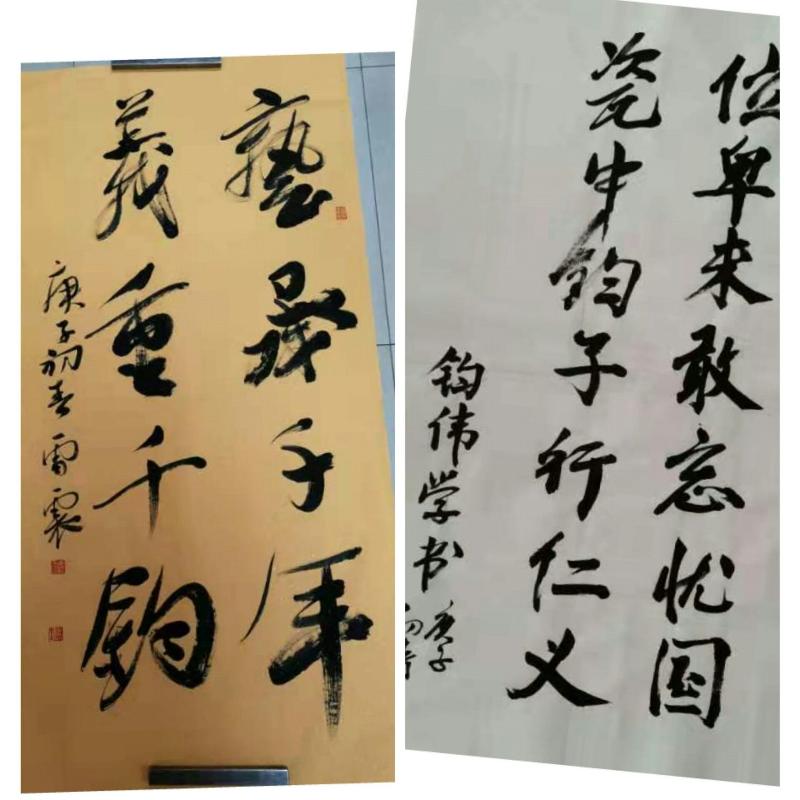 藝千年
義重千鈞
庚子初春雷震
位卑未敢忘忧国
瓷中钧子行仁义
钧伟学书
庚子